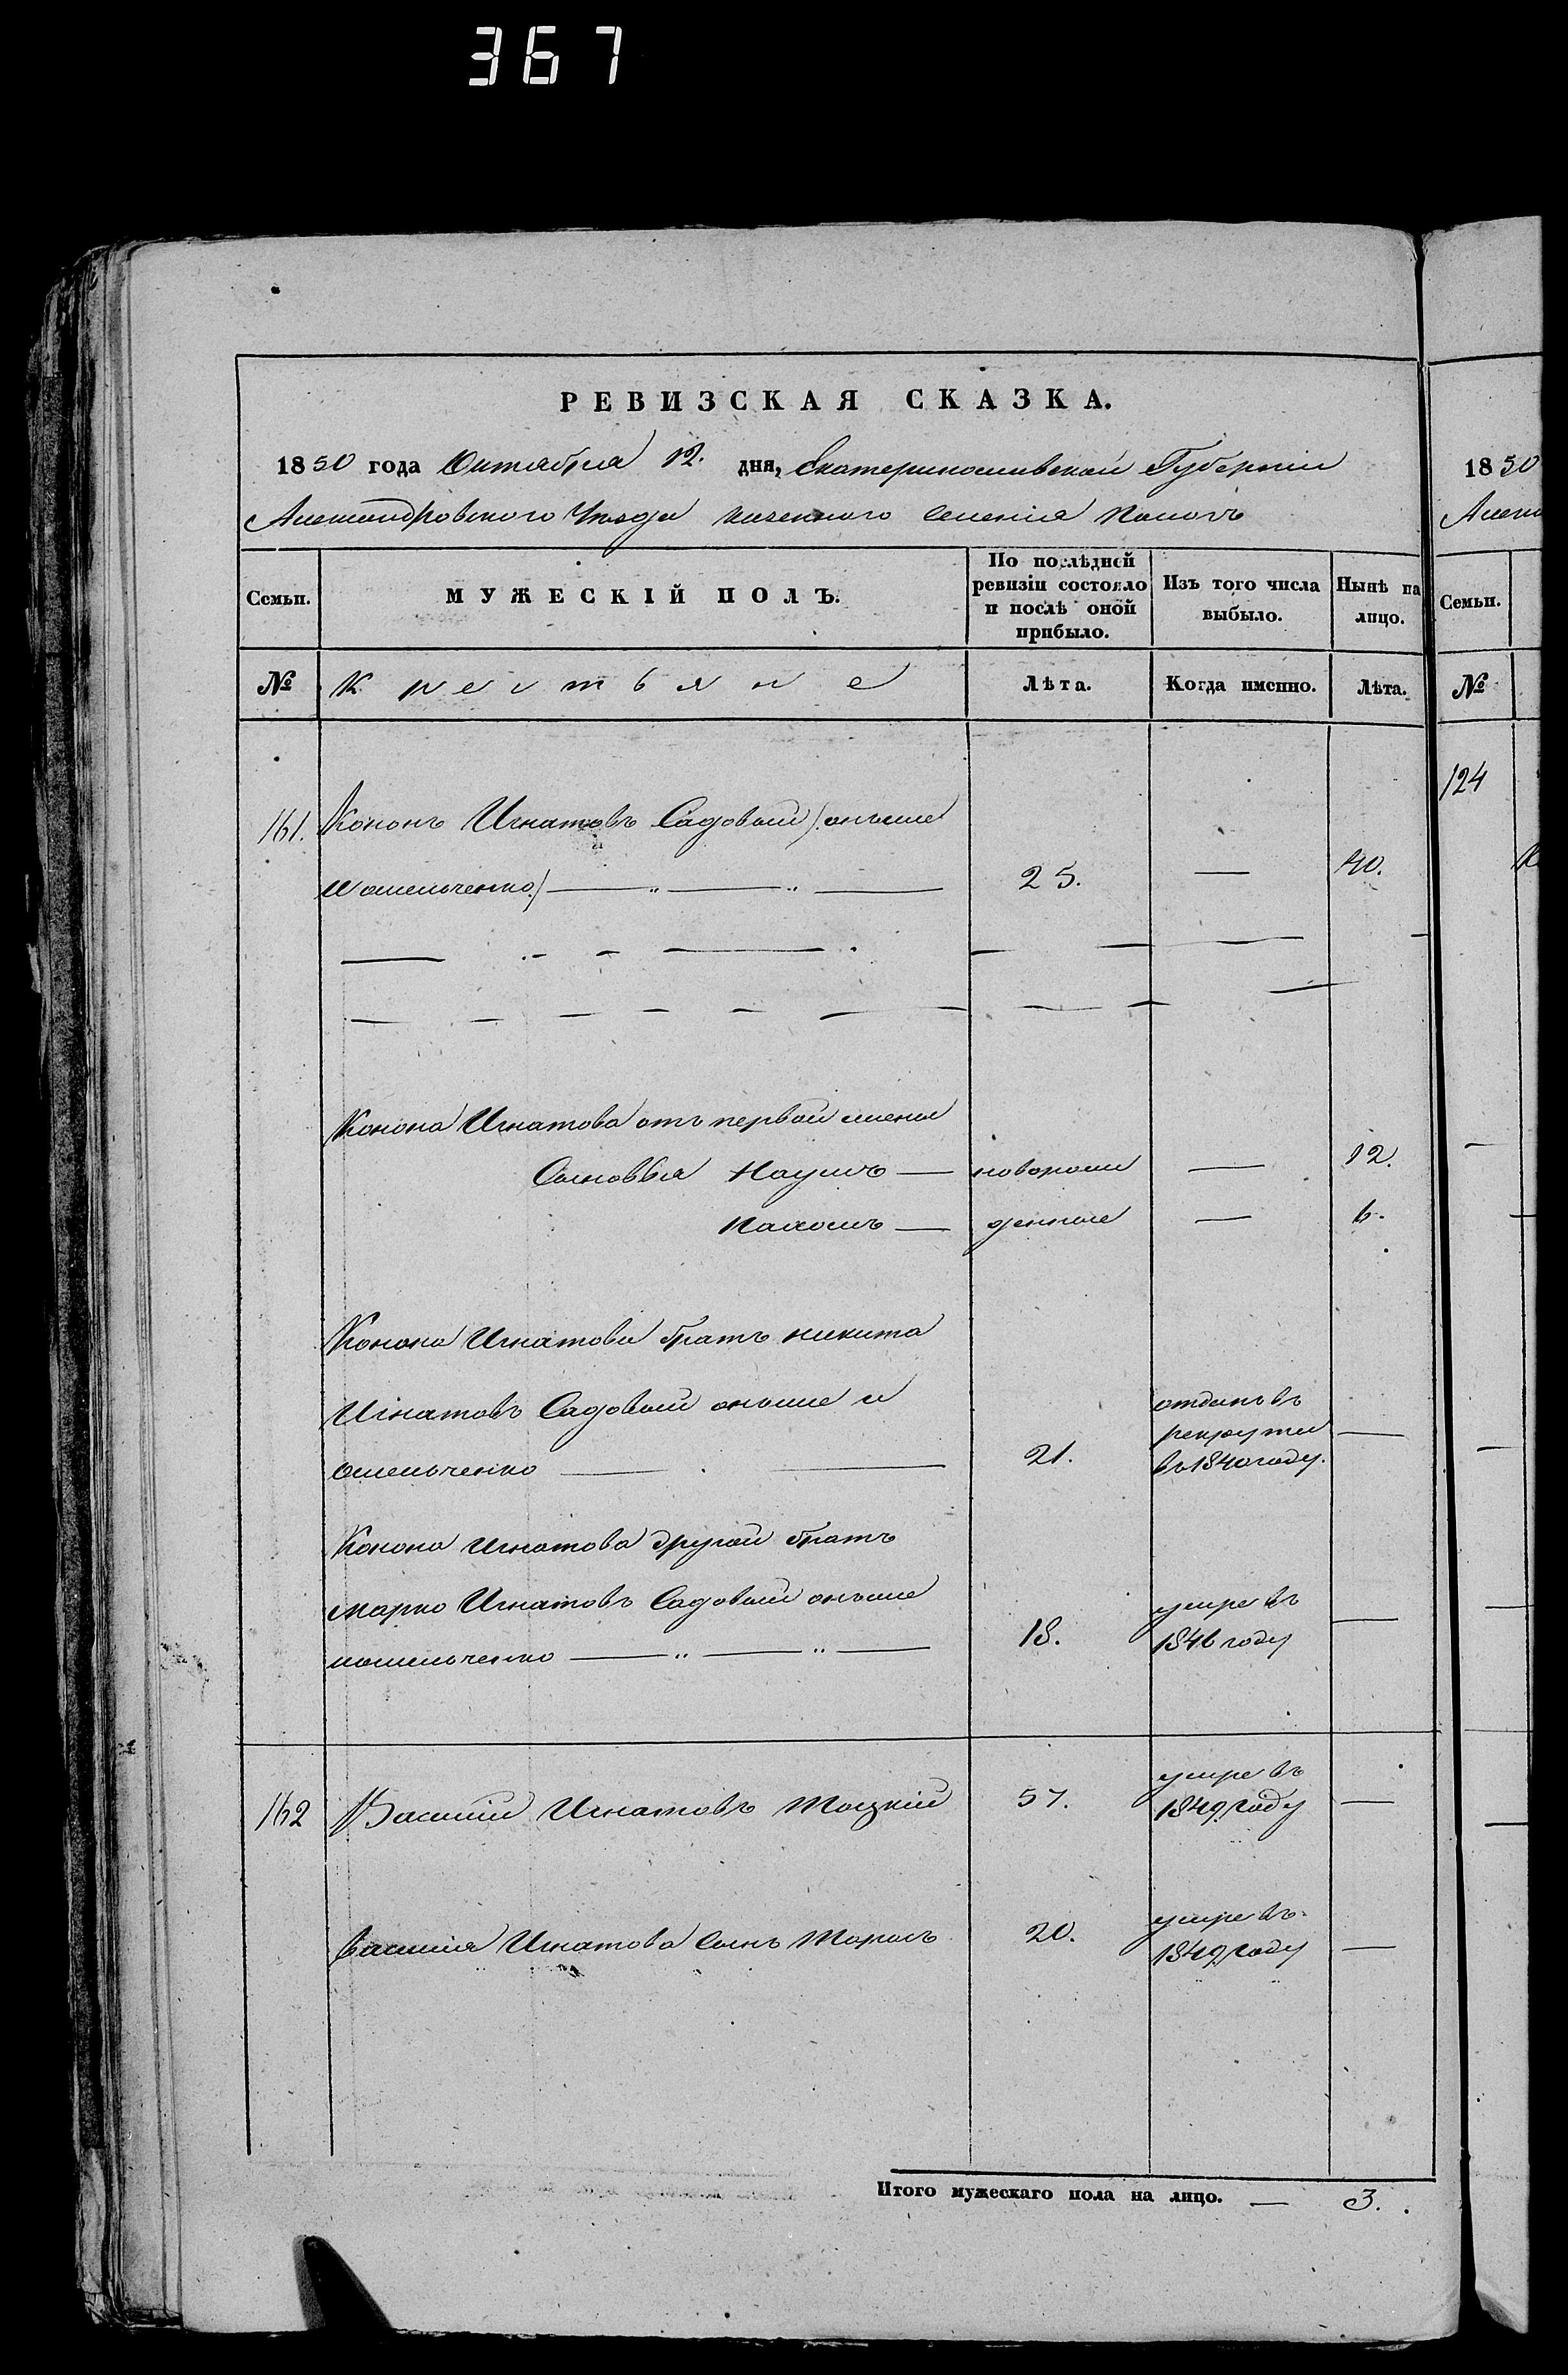 367
РЕВИЗСКАЯ СКАЗКА.
1850 года Октября 12. дня, Екатеринославской Губернии
Александровского Уѣзда казенного селенія
Семьи.
МУЖЕСКІЙ ПОЛЪ.
По послѣдней ревизіи состояло и послѣ оной прибыло.
Изъ того числа выбыло.
Нынѣ на лицо.
№
Крестьяне
Лѣта.
Когда именно.
Лѣта.
161. Кононъ Игнатовъ Садовый /онъ же
и омельченко/ 25. — 40.
Конона Игнатова отъ первой жены
Сыновья Наумъ — новорож — 12.
Пахомъ — денные — 6.
Конона Игнатова братъ никита
Игнатовъ Садовый онъ же и
омельченко 21. отданъ въ рекруты въ 1840 году. —
Конона Игнатова другой братъ
марко Игнатовъ Садовый онъ же
иомельченко 18. умре въ 1846 году —
162 Василій Игнатовъ Тоцкій 57. умре въ 1849 году —
Василія Игнатова Сынъ Тарасъ 20. умре въ 1849 году —
Итого мужескаго пола на лицо. — 3.
1850
Семьи.
№
124